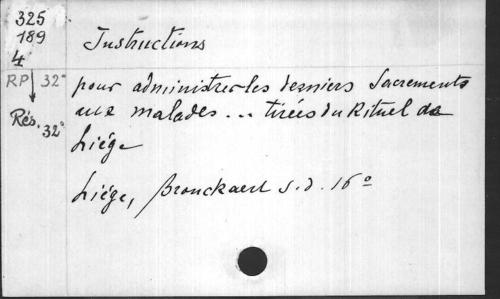 325
189
4
Instructions
RP 32°
pour administrer les derniers Sacrements
aux malades ... tirées du Rituel de
Rés. 32°
Liége
Liége, Bronckaert s.d. 16°